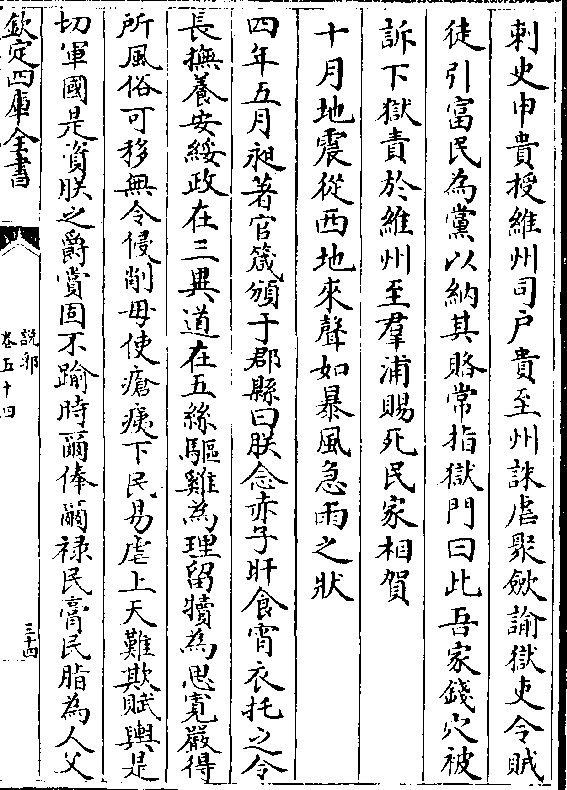 刺史申貴授維州司戶貴至州誅虐聚斂諭獄吏令賊
徒引富民為黨以納其賂常指獄門曰此吾家錢穴被
訴下獄責於維州至羣浦賜死民家相賀
十月地震從西地來聲如暴風急雨之狀
四年五月昶著官箴頒于郡縣曰朕念赤子旰食宵衣托之令
長撫養安綏政在三異道在五絲驅雞為理留犢為思寛嚴得
所風俗可移無令侵削毋使瘡痍下民易虐上天難欺賦輿是
切軍國是資朕之爵賞固不踰時爾俸爾禄民膏民脂為人父
欽定四庫全書
說郛
卷五十四
三十四